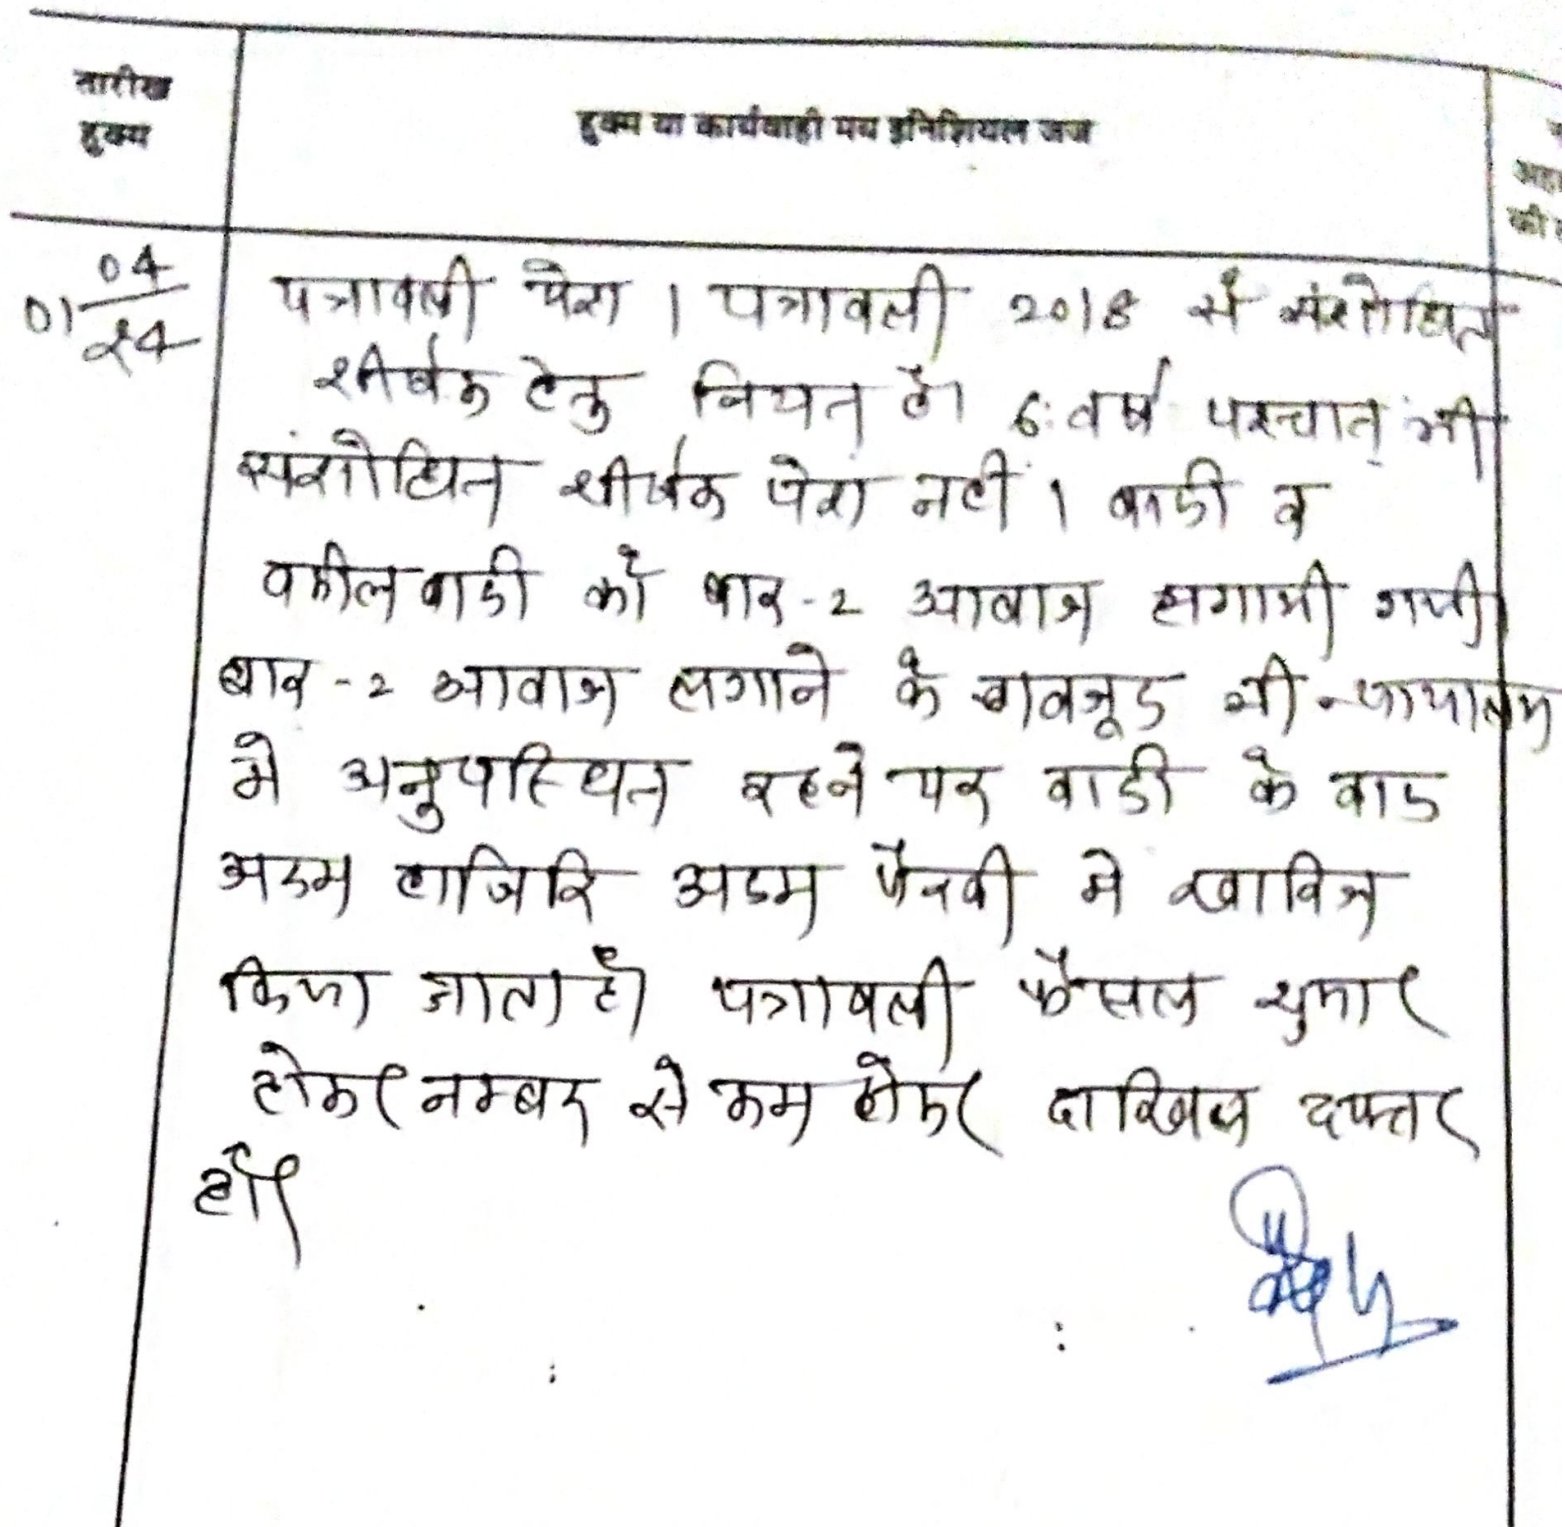 तारीख
हुक्म
हुक्म या कार्यवाही मय इनिशियल जज
की
01/04/24
पत्रावली पेश । पत्रावली 2018 से संशोधित
शीर्षक हेतु नियत है। 6 वर्ष पश्चात् भी
संशोधित शीर्षक पेश नहीं । वादी व
वकील वादी को बार-2 आवाज लगायी गयी
बार-2 आवाज लगाने के बावजूद भी न्यायालय
मे अनुपस्थित रहने पर वादी के वाद
अदम हाजिरि अदम पैरवी मे खारिज
किया जाता है। पत्रावली फैसल शुमार
होकर नम्बर से कम होकर दाखिल दफ्तर
हो।